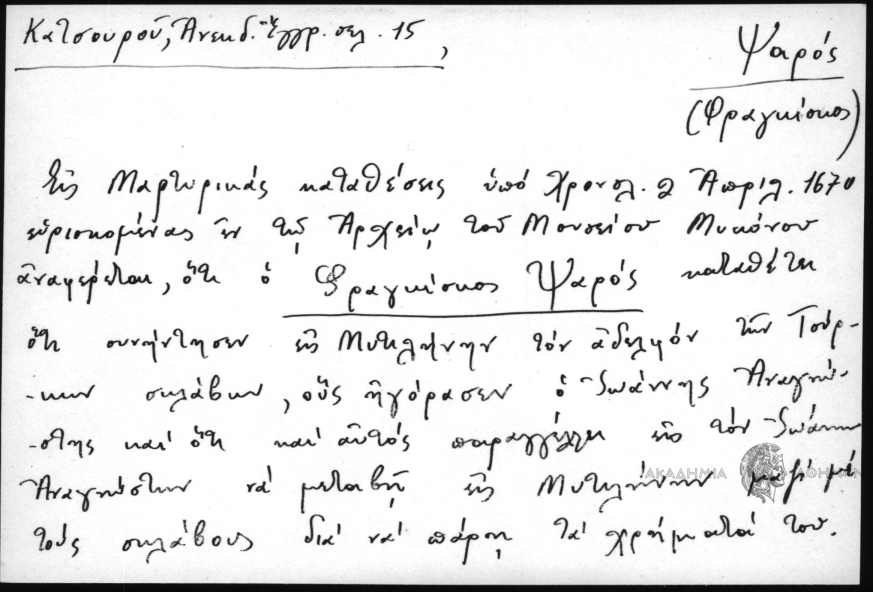 Κατσουροῦ, Ἀνεκδ. Ἔγγρ. σελ. 15,
Ψαρός
(Φραγκίσκος)
Εἰς Μαρτυρικάς καταθέσεις ὑπό χρονολ. 2 Ἀπριλ. 1670
εὑρισκομένας ἐν τῷ Ἀρχείῳ τοῦ Μουσείου Μυκόνου
ἀναφέρεται, ὅτι ὁ Φραγκίσκος Ψαρός καταθέτει
ὅτι συνήντησεν εἰς Μυτιλήνην τόν ἀδελφόν τῶν Τούρ-
-κων σκλάβων, οὕς ἠγόρασεν ὁ Ἰωάννης Ἀναγνώ-
-στης καί ὅτι καί αὐτός παραγγέλλει εἰς τόν Ἰωάννην
Ἀναγνώστην νά μεταβῇ εἰς Μυτιλήνην μαζί μέ
τούς σκλάβους διά νά πάρῃ τά χρήματά του.
ΑΚΑΔΗΜΙΑ ΑΘΗΝΩΝ